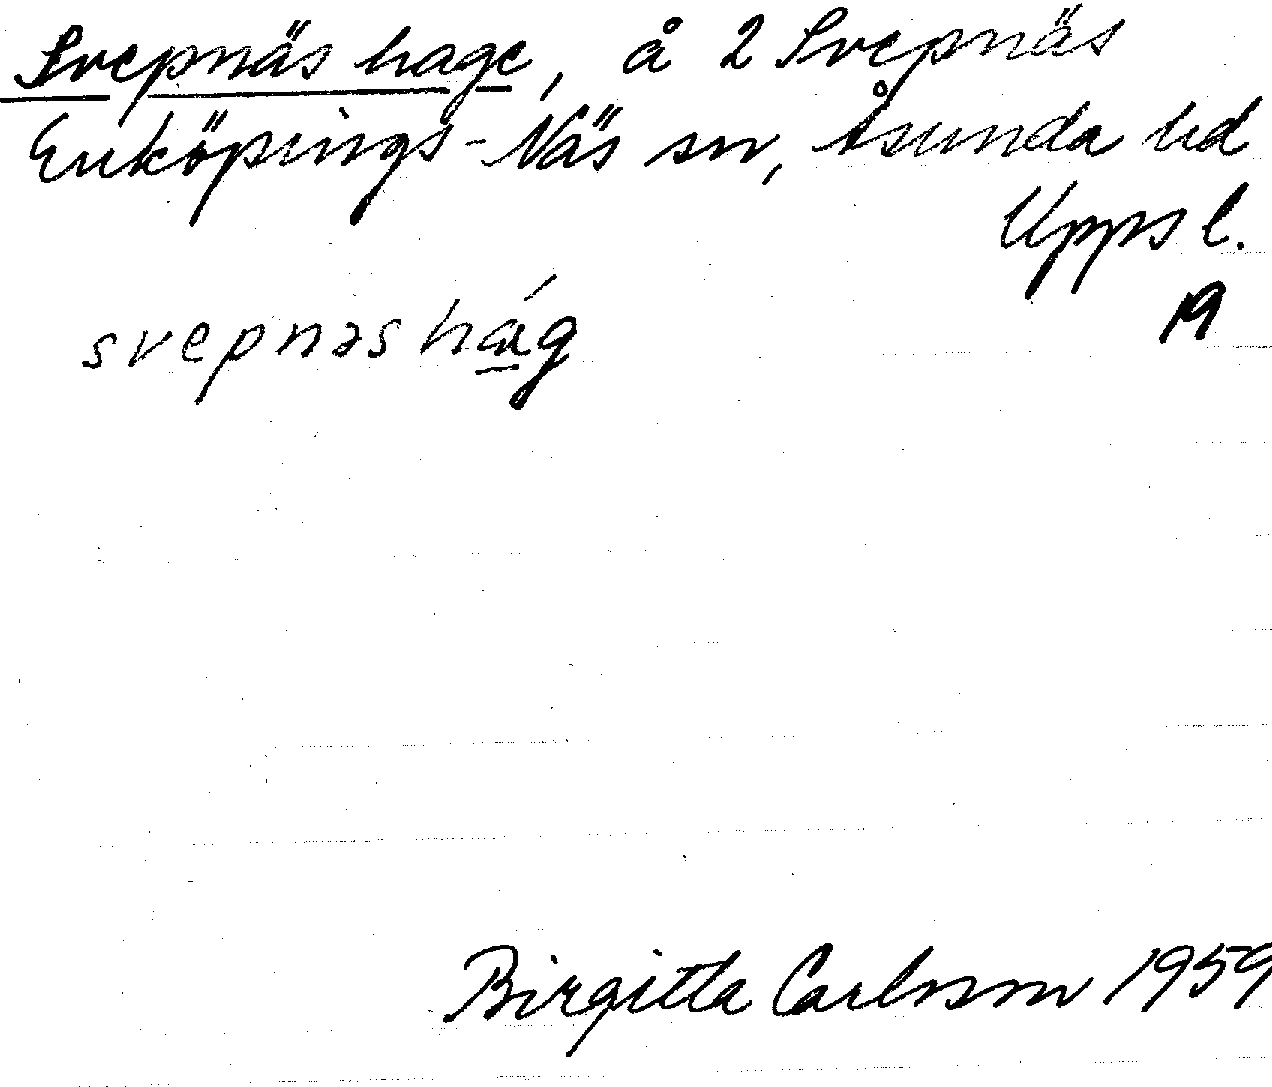 Svepnäs hage, å 2 Svepnäs
Enköpings-Näs sn, Åsunda hd
Upps l.
19
svepnəs hág
Birgitta Carlsson 1959